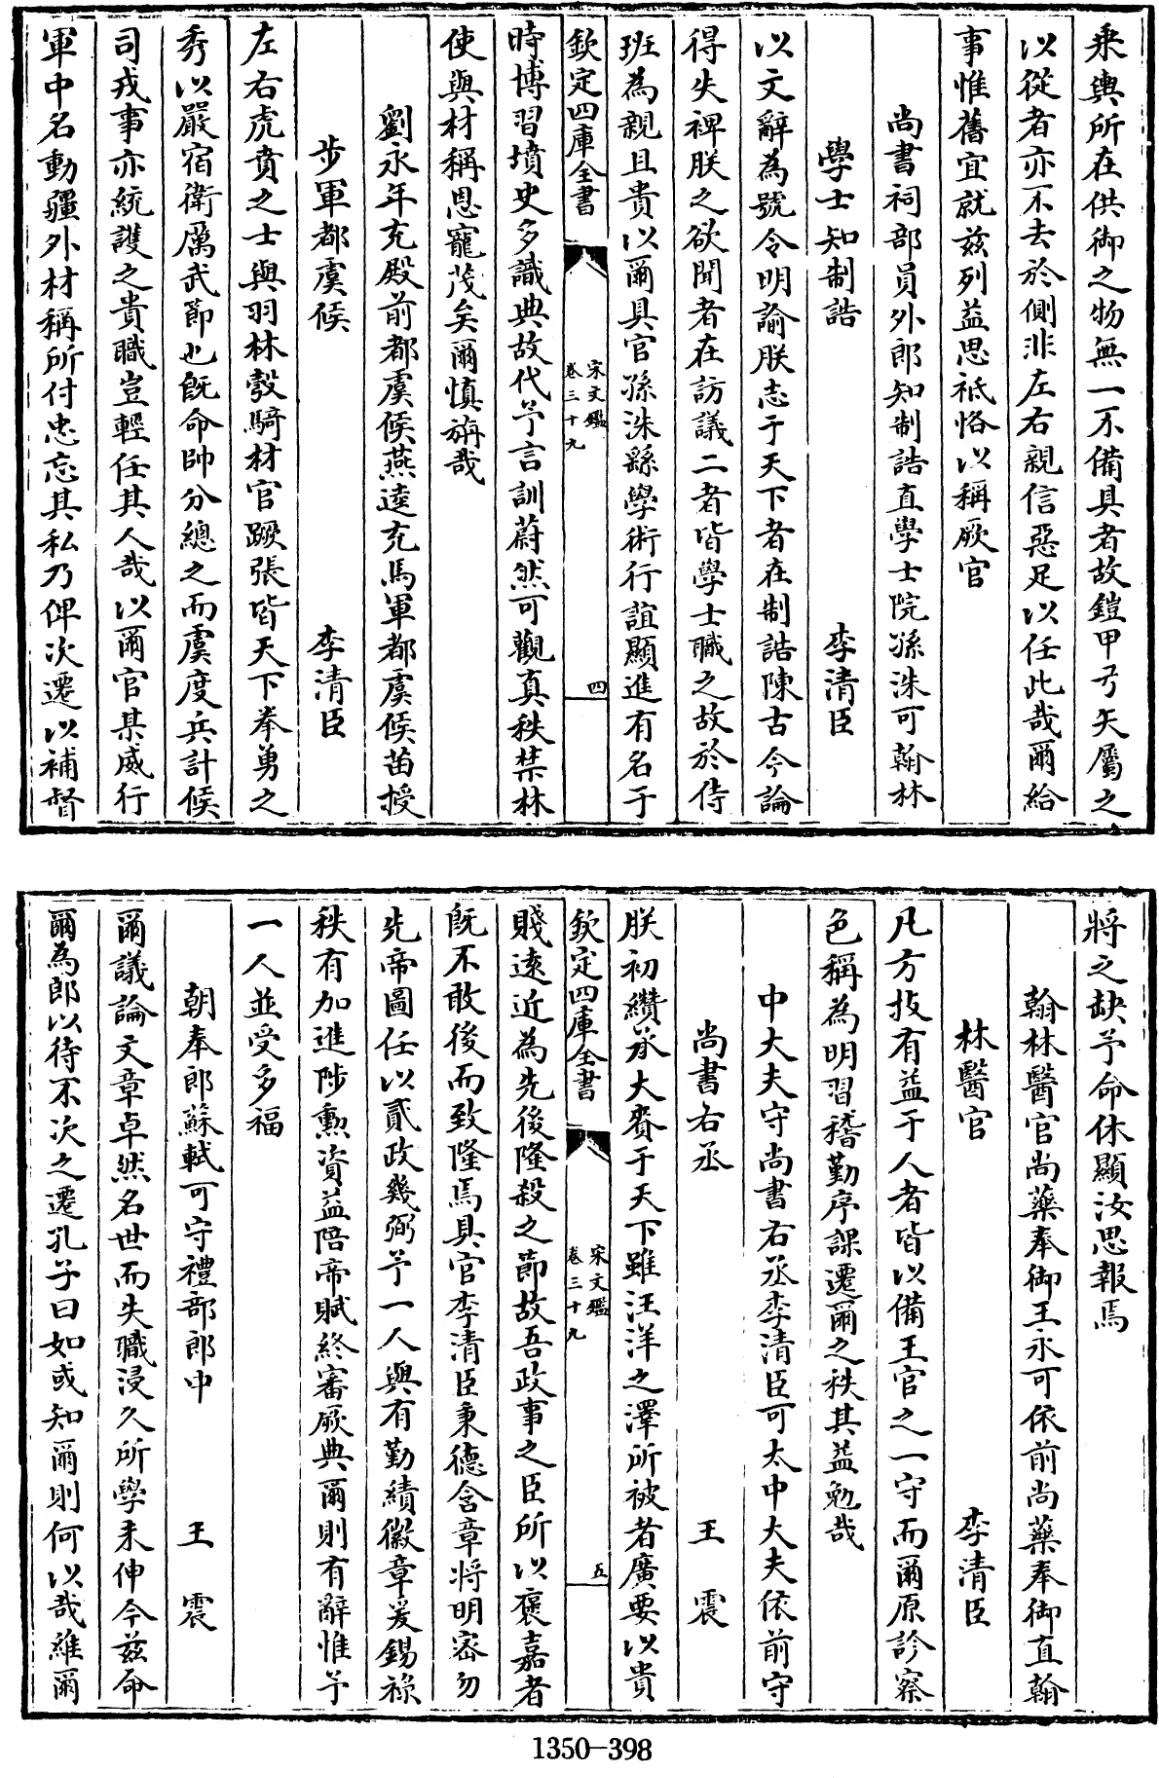 乗輿所在供御之物無一不備具者故鎧甲弓矢屬之
以從者亦不去於側非左右親信惡足以任此哉爾給
事惟舊宜就兹列益思祗恪以稱厥官
尚書祠部員外郎知制誥直學士院孫洙可翰林
學士知制誥 李清臣
以文辭為號令明諭朕志于天下者在制誥陳古今論
得失禆朕之欲聞者在訪議二者皆學士職之故於侍
班為親且貴以爾具官孫洙繇學術行誼顯進有名于
欽定四庫全書 宋文鑑 卷三十九 四
時博習墳史多識典故代予言訓蔚然可觀真秩禁林
使與材稱恩寵茂矣爾慎旃哉
劉永年充殿前都虞候燕逵充馬軍都虞候苗授
步軍都虞候 李清臣
左右虎賁之士與羽林彀騎材官蹶張皆天下拳勇之
秀以嚴宿衛厲武節也既命帥分總之而虞度兵計候
司戎事亦統護之貴職豈輕任其人哉以爾官某威行
軍中名動疆外材稱所付忠忘其私乃俾次遷以補督
將之缺予命休顯汝思報焉
翰林醫官尚藥奉御王永可依前尚藥奉御直翰
林醫官 李清臣
凡方技有益于人者皆以備王官之一守而爾原診察
色稱為明習稽勤序課遷爾之秩其益勉哉
中大夫守尚書右丞李清臣可太中大夫依前守
尚書右丞 王震
朕初纘承大賚于天下雖汪洋之澤所被者廣要以貴
欽定四庫全書 宋文鑑 卷三十九 五
賤逺近為先後隆殺之節故吾政事之臣所以襃嘉者
既不敢後而致隆焉具官李清臣秉德含章將明密勿
先帝圖任以貳政幾弼予一人與有勤績徽章爰錫祿
秩有加進陟勲資益陪帝賦終審厥典爾則有辭惟予
一人並受多福
朝奉郎蘇軾可守禮部郎中 王震
爾議論文章卓然名世而失職浸久所學未伸今兹命
爾為郎以待不次之遷孔子曰如或知爾則何以哉維爾
1350-398